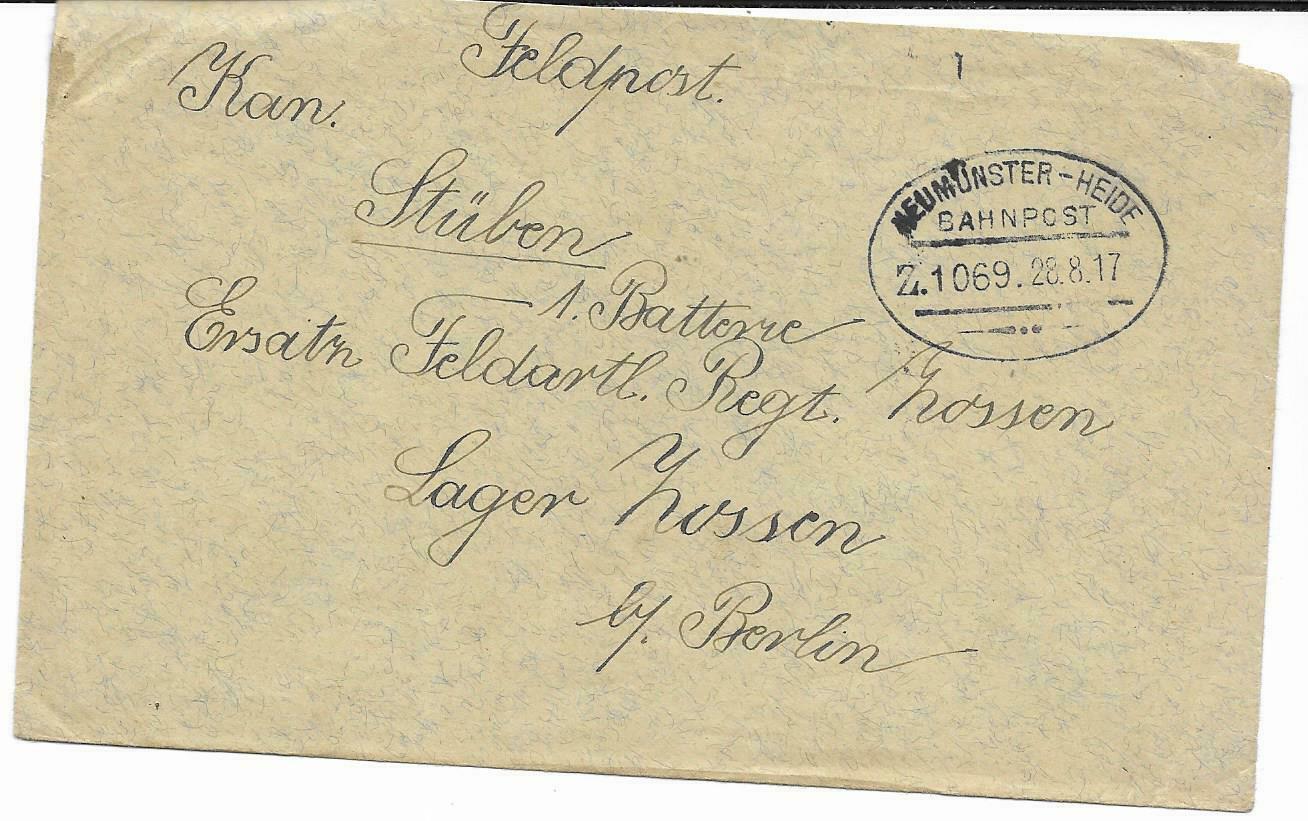 Feldpost.
Kan.
Stüben
1. Batterie
Ersatz Feldartl. Regt. Zossen
Lager Zossen
b/. Berlin
NEUMÜNSTER-HEIDE
BAHNPOST
Z.1069. 28.8.17